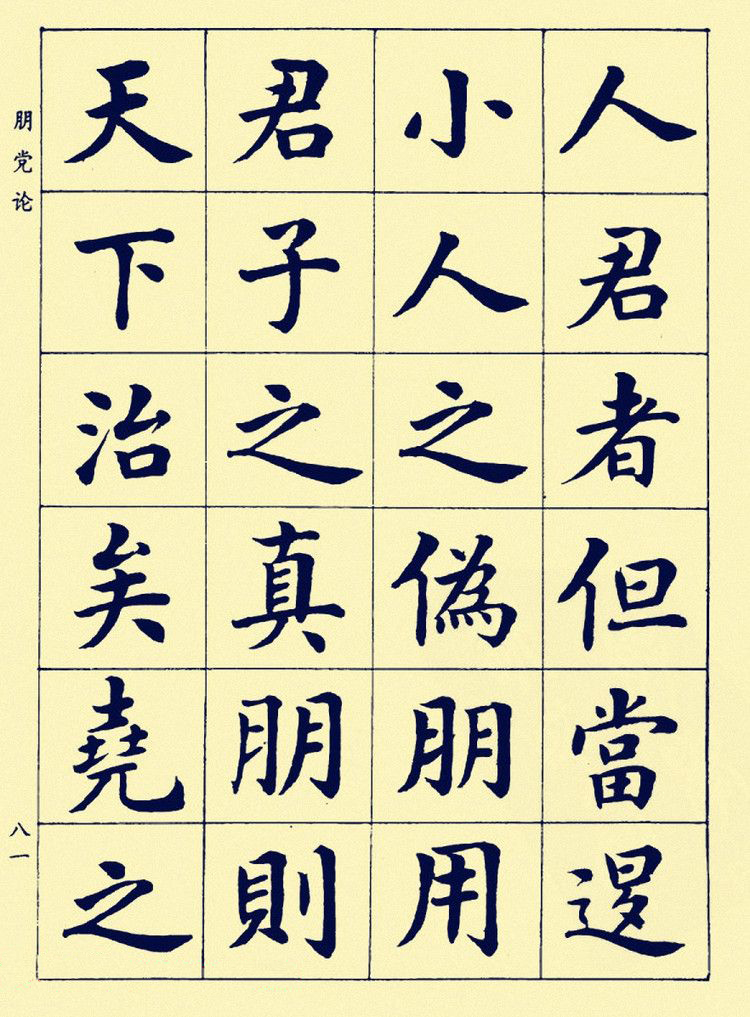 人君者但當退
小人之偽朋用
君子之真朋則
天下治矣堯之
朋党论
八一